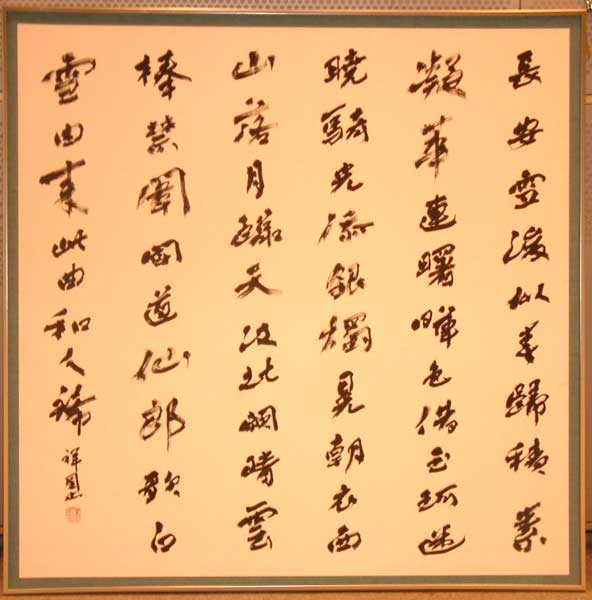 長安雪後似春歸積素
凝華連曙暉色借玉珂迷
曉騎光添銀燭晃朝衣西
山落月臨天仗北闕晴雲
捧禁闈聞道仙郎歌白
雪由来此曲和人稀